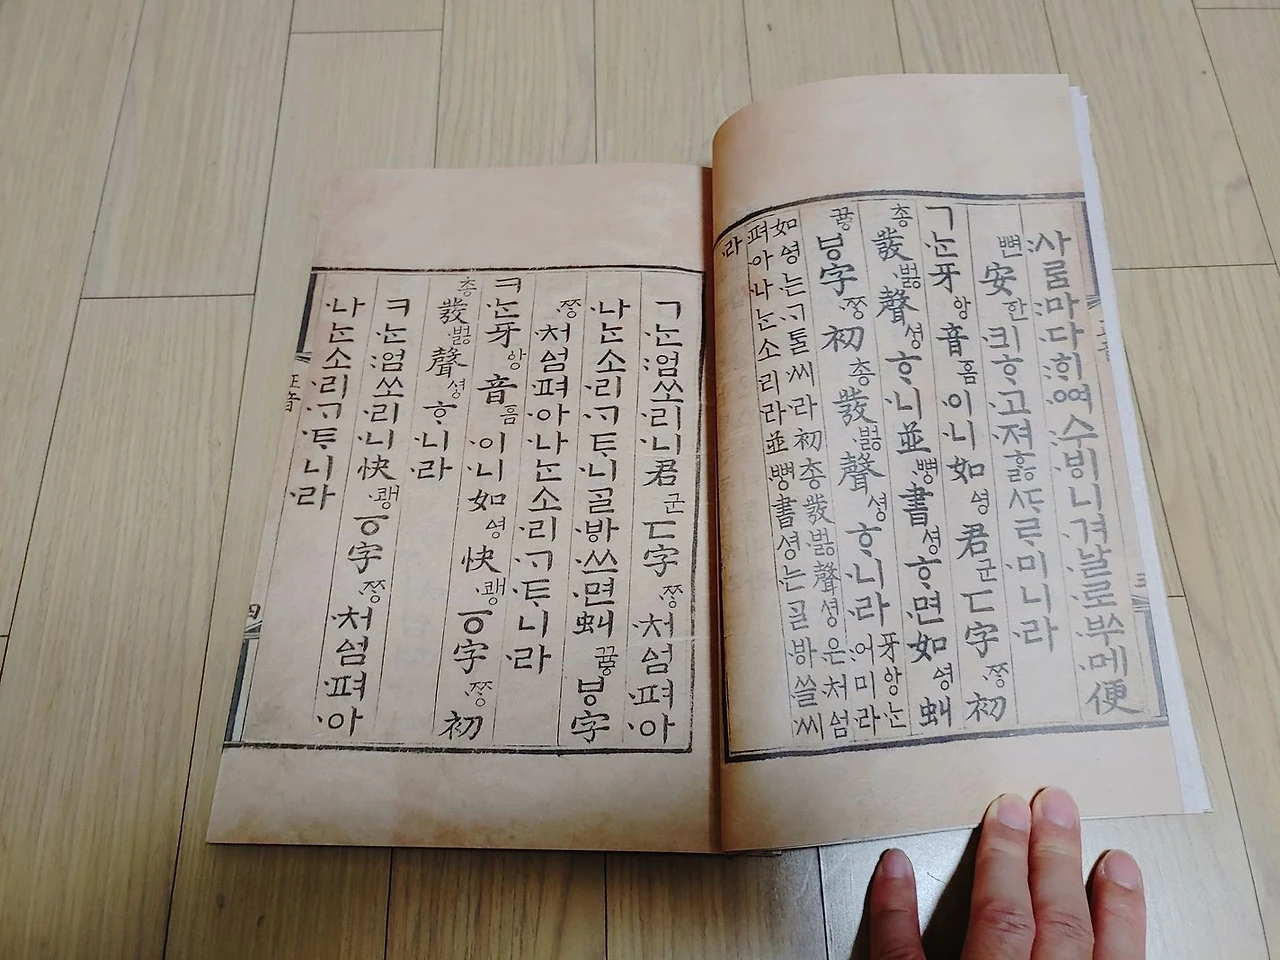 :사ᄅᆞᆷ:마다:ᄒᆡᅇᅧ:수·ᄫᅵ니·겨·날·로·ᄡᅮ·메便
뼌安한·킈ᄒᆞ·고·져ᄒᆞᇙᄯᆞᄅᆞ·미니·라
ㄱ·ᄂᆞᆫ牙ᅌᅡ音ᅙᅳᆷ·이·니如ᅀᅧᆼ君군ㄷ字·ᄍᆞᆼ初
총發·버ᇙ聲셩ᄒᆞ·니並·뼝書셩ᄒᆞ·면如ᅀᅧᆼ虯
뀨ᇢㅸ字·ᄍᆞᆼ初총發·버ᇙ聲셩ᄒᆞ·니·라
牙ᅌᅡ·ᄂᆞᆫ
:어미·라
如ᅀᅧᆼ·는·ᄀᆞ·ᄐᆞᆯ·씨·라初총發·버ᇙ聲셩·은·처ᅀᅥᆷ
·펴·아·나·ᄂᆞᆫ소·리·라並·뼝書셩·는ᄀᆞᆯ·ᄫᅡ·쓸·씨
·라
ㄱ·ᄂᆞᆫ:엄쏘·리·니君군ㄷ字·ᄍᆞᆼ·처ᅀᅥᆷ·펴·아
·나·ᄂᆞᆫ소·리·ᄀᆞ·ᄐᆞ·니ᄀᆞᆯ·ᄫᅡ·쓰·면虯뀨ᇢㅸ字
·ᄍᆞᆼ·처ᅀᅥᆷ·펴·아·나·ᄂᆞᆫ소·리·ᄀᆞ·ᄐᆞ·니·라
ㅋ·ᄂᆞᆫ牙ᅌᅡ音ᅙᅳᆷ·이·니如ᅀᅧᆼ快·쾡ㆆ字·ᄍᆞᆼ初
총發·버ᇙ聲셩ᄒᆞ·니·라
ㅋ·ᄂᆞᆫ:엄쏘·리·니快·쾡ㆆ字·ᄍᆞᆼ·처ᅀᅥᆷ·펴·아
·나·ᄂᆞᆫ소·리·ᄀᆞ·ᄐᆞ·니·라
正音
四